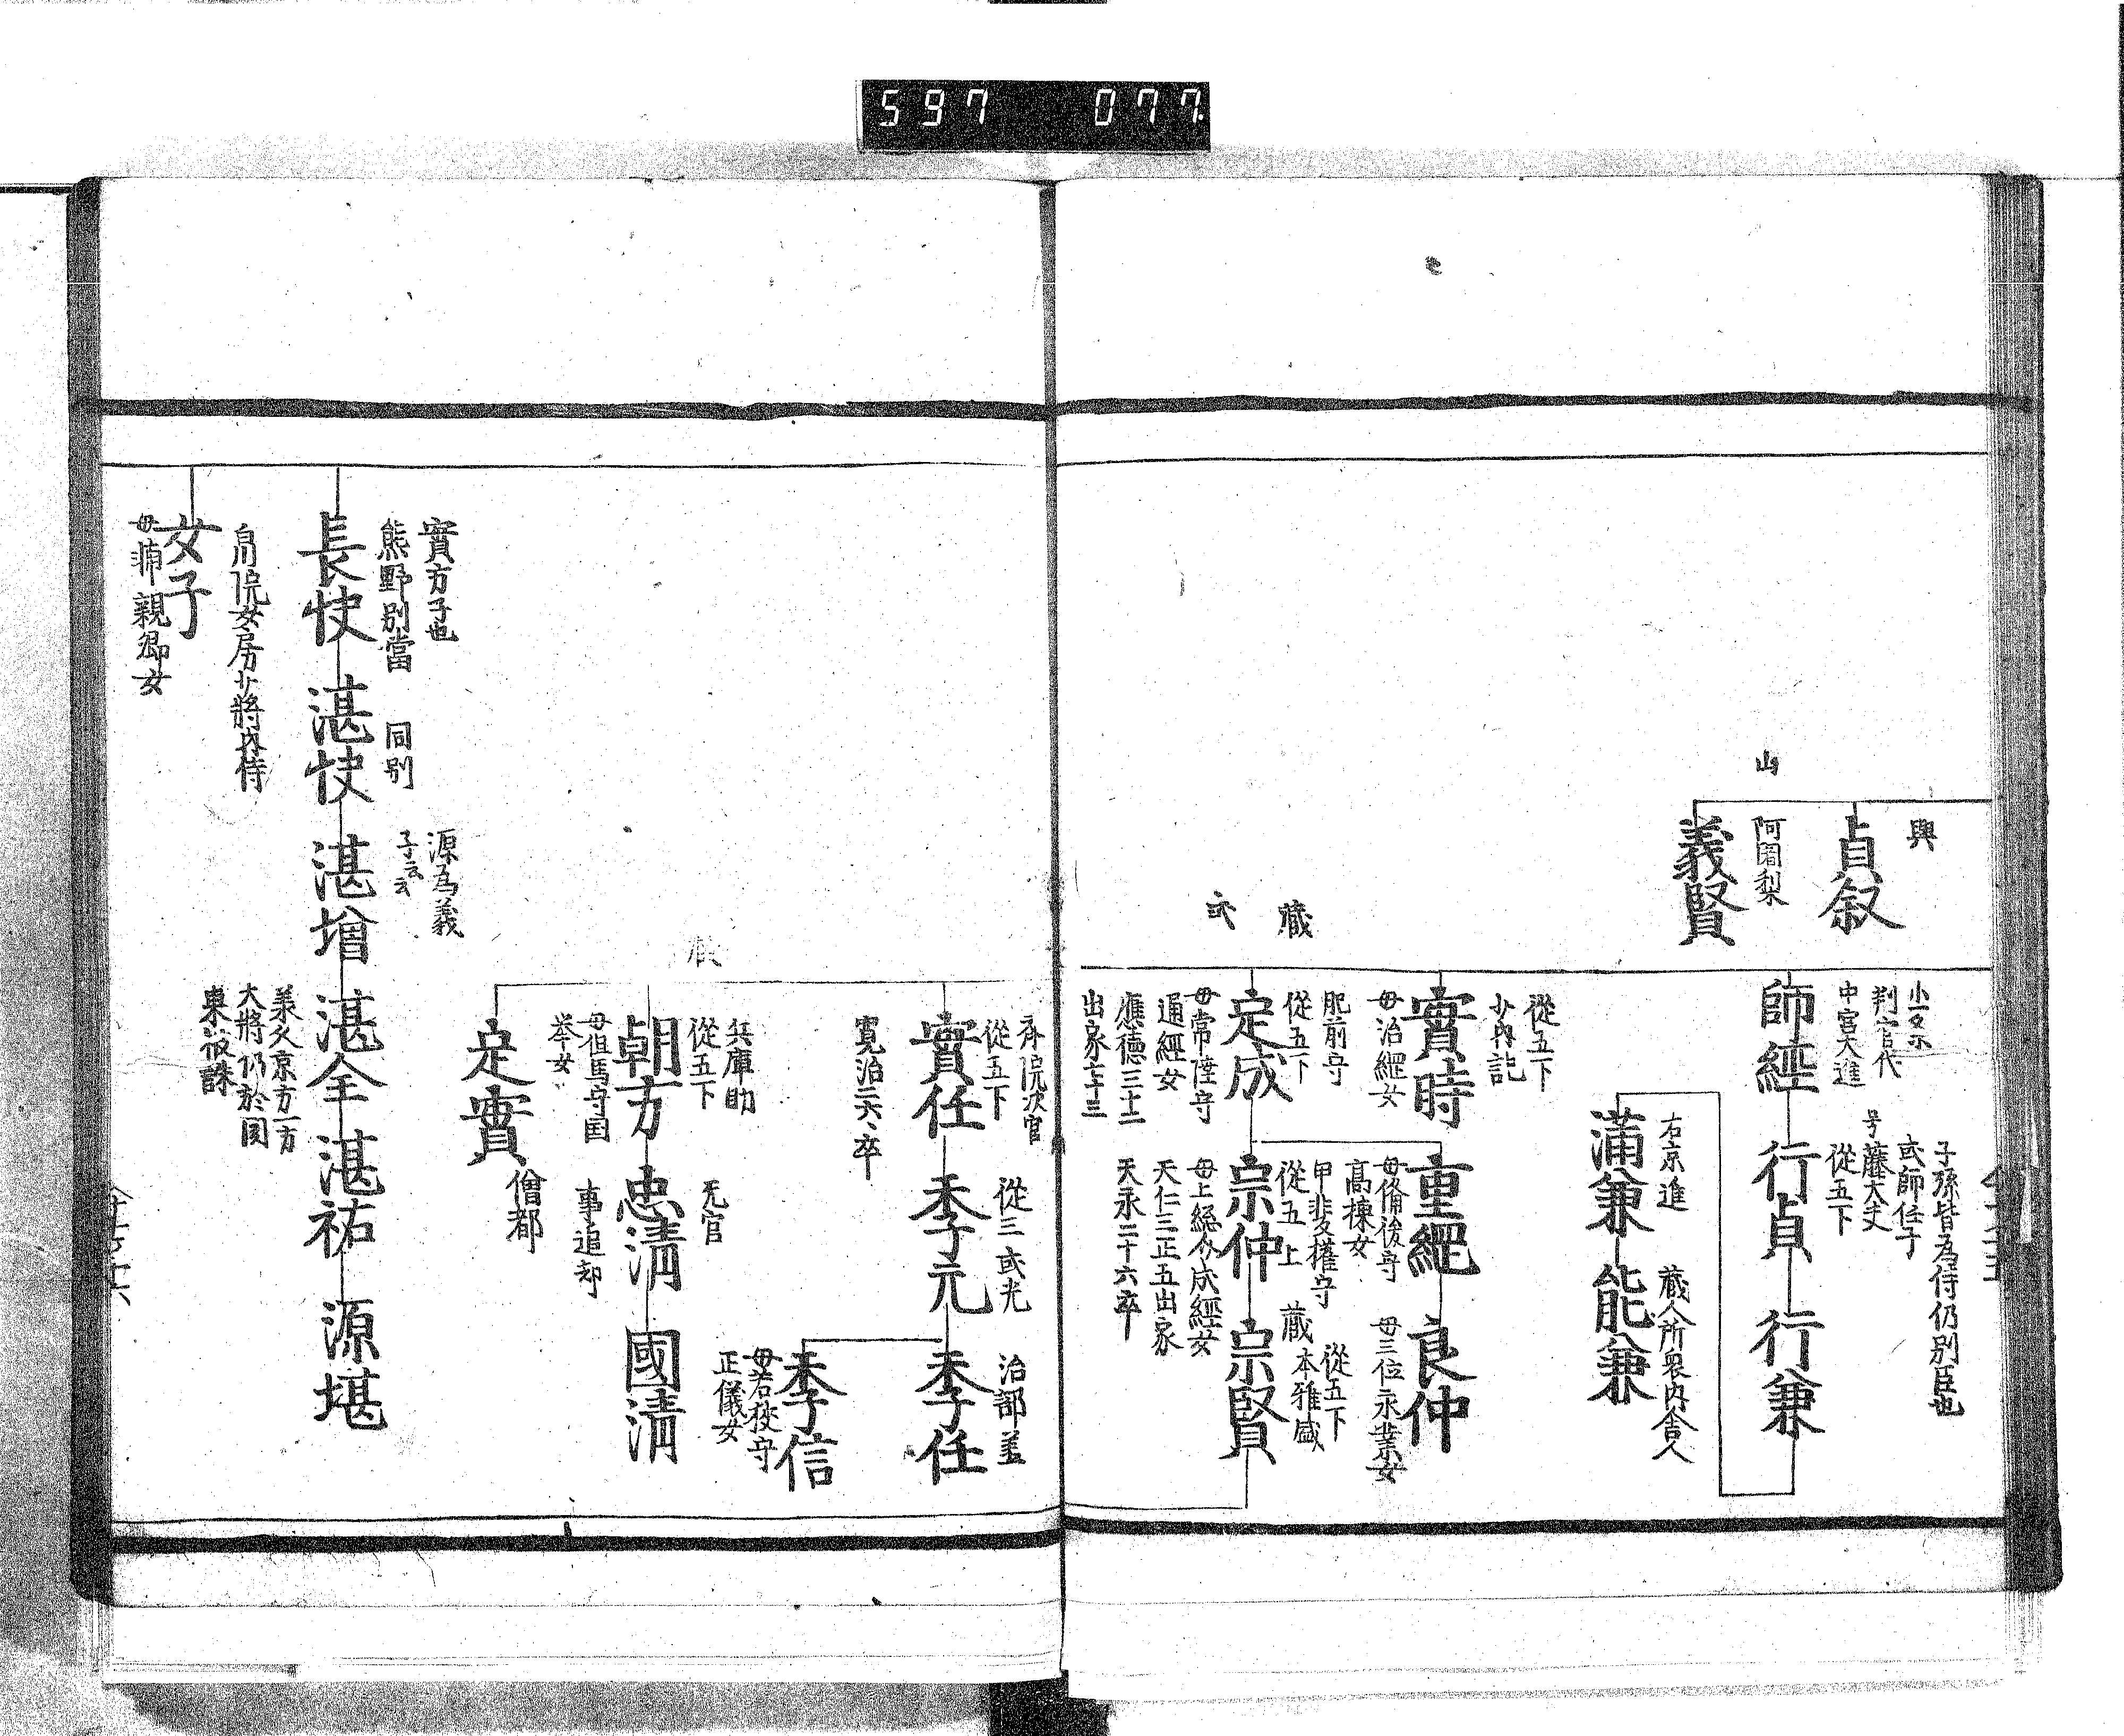 597 077.
興
貞叙
山
阿闍梨
義賢
小一条
判官代
中宮大進
師經
子孫皆為侍仍別臣也
或師任子
号藤大夫
從五下
行貞
行兼
右京進
蒲兼
蔵人所衆内舎人
能兼
從五下
少内記
實時
母治經女
母備後守
高棟女
重經
良仲
母三位永業女
蔵
肥前守
從五下
定成
母常陸守
通經女
應徳三十二
出家七十三
甲斐權守
從五上
宗仲
母上総介成經女
天仁三正五出家
天永二十六卒
蔵
從五下
本雅盛
宗賢
斎院次官
從五下
實任
寛治二六、卒
從三 或光
季元
治部丞
季任
季信
母若狭守
正儀女
兵庫助
從五下
朝方
母但馬守国
挙女
无官
忠清
事追却
國清
定實
僧都
實方子也
熊野別當
長快
同別
湛快
源為義
子云云
湛増
湛全
承久京方一方
大將仍於関
東被誅
湛祐
源堪
白河院女房少將内侍
女子
母輔親卿女